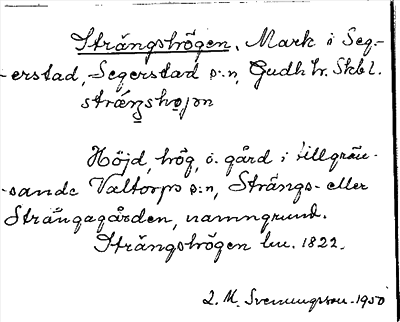 Strängshögen, Mark i Seg-
-erstad, Segerstad s:n, Gudh hr. Skbl.
strängshojon
Höjd, hög, ö. gård i tillgrän-
-sande Valtorps s:n, Strängs- eller
Strängagården, namngrund.
Strängshögen lm. 1822.
L. M. Svenungsson - 1950